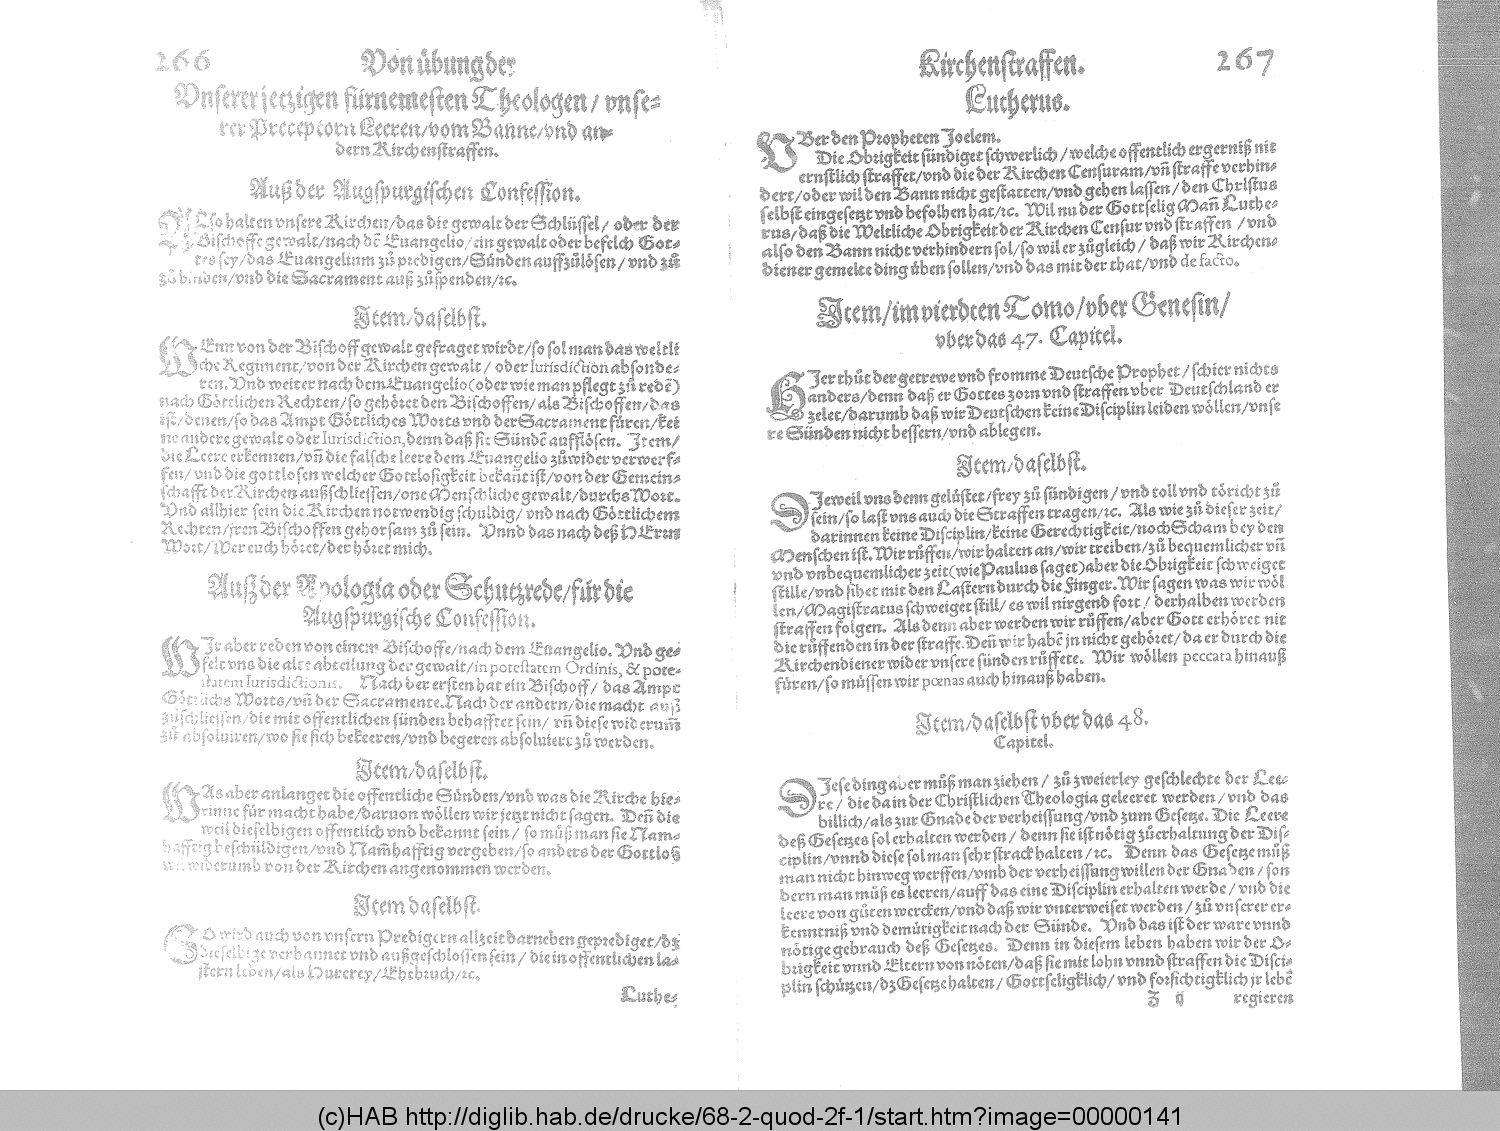 266 Von übung der
Vnserer jetzigen fürnemesten Theologen / vnse-
rer Preceptorn Leeren/vom Banne/vnd an-
dern Kirchenstraffen.
Auß der Augspurgischen Confession.
ALso halten vnsere Kirchen/das die gewalt der Schlüssel/ oder der
Bischoffe gewalt/nach dē Euangelio/ein gewalt oder befelch Got-
tes sey/das Euangelium zů predigen/Sünden auffzůlösen/vnd zů
zů binden/vnd die Sacrament auß zůspenden/ꝛc.
Item/daselbst.
WEnn von der Bischoff gewalt gefraget wirdt/so sol man das weltli
che Regiment/von der Kirchen gewalt/ oder Iurisdiction absonde-
ren. Vnd weiter nach dem Euangelio (oder wie man pflegt zů redē)
nach Göttlichen Rechten/so gehöret den Bischoffen/als Bischoffen/das
ist/denen/so das Ampt Göttliches Worts vnd der Sacrament füren/kei
ne andere gewalt oder Iurisdiction, denn daß sie Sündē aufflösen. Item/
die Leere erkennen/vñ die falsche leere dem Euangelio zůwider verwerf-
fen/ vnd die gottlosen welcher Gottlosigkeit bekañt ist/von der Gemein-
schafft der Kirchen außschliessen/one Menschliche gewalt/durchs Wort.
Vnd allhier sein die Kirchen notwendig schuldig/ vnd nach Göttlichem
Rechten/jren Bischoffen gehorsam zů sein. Vnnd das nach deß HErrn
Wort/Wer euch höret/der höret mich.
Auß der Apologia oder Schutzrede/für die
Augspurgische Confession.
WIr aber reden von einem Bischoffe/nach dem Euangelio. Vnd ge-
felt vns die alte abteilung der gewalt/in potestatem Ordinis, & pote-
statem Iurisdictionis. Nach der ersten hat ein Bischoff/ das Ampt
Göttlichs Worts/vñ der Sacramente. Nach der andern/die macht auß
zůschliessen/die mit offentlichen sünden behafftet sein/ vñ diese widerum̄
zů absoluiren/wo sie sich bekeeren/vnd begeren absoluiert zů werden.
Item/daselbst.
WAs aber anlanget die offentliche Sünden/vnd was die Kirche hie-
rinne für macht habe/daruon wöllen wir jetzt nicht sagen. Deñ die
weil dieselbigen offentlich vnd bekannt sein / so můß man sie Nam-
hafftig beschüldigen/vnd Nam̄hafftig vergeben/so anders der Gottloß
widerumb von der Kirchen angenommen werden.
Item daselbst.
SO wird auch von vnsern Predigern allzeit darneben geprediget/dz
dieselbige verbannet vnd außgeschlossen sein / die in offentlichen la-
stern leben/als Hurerey/Ehebruch/ꝛc.
Luthe-
Kirchenstraffen. 267
Lutherus.
VBer den Propheten Joelem.
Die Obrigkeit sündiget schwerlich/welche offentlich ergerniß nit
ernstlich straffet/vnd die der Kirchen Censuram/vñ straffe verhin-
dert/oder wil den Bann nicht gestatten/vnd gehen lassen/den Christus
selbst eingesetzt vnd befolhen hat/ꝛc. Wil nu der Gottselig Mañ Luthe-
rus/daß die Weltliche Obrigkeit der Kirchen Censur vnd straffen /vnd
also den Bann nicht verhindern sol/so wil er zůgleich/ daß wir Kirchen-
diener gemelte ding üben sollen/vnd das mit der that/vnd de facto.
Item/im vierdten Tomo/vber Genesin/
vber das 47. Capitel.
HIer thůt der getrewe vnd fromme Deutsche Prophet/schier nichts
anders/denn daß er Gottes zorn vnd straffen vber Deutschland er
zelet/darumb daß wir Deutschen keine Disciplin leiden wöllen/vnse
re Sünden nicht bessern/vnd ablegen.
Item/daselbst.
DIeweil vns denn gelüstet/frey zů sündigen/vnd toll vnd töricht zů
sein/so last vns auch die Straffen tragen/ꝛc. Als wie zů dieser zeit/
darinnen keine Disciplin/keine Gerechtigkeit/noch Scham bey den
Menschen ist. Wir růffen/wir halten an/wir treiben/zů bequemlicher vñ
vnd vnbequemlicher zeit (wie Paulus saget) aber die Obrigkeit schweiget
stille/vnd sihet mit den Lastern durch die Finger. Wir sagen was wir wöl
len/Magistratus schweiget still/ es wil nirgend fort/ derhalben werden
straffen folgen. Als denn aber werden wir růffen/aber Gott erhöret nit
die růffenden in der straffe. Deñ wir habē jn nicht gehöret/da er durch die
Kirchendiener wider vnsere sünden růffete. Wir wöllen peccata hinauß
füren/so müssen wir pœnas auch hinauß haben.
Item/daselbst vber das 48.
Capitel.
DIese ding aber můß man ziehen / zů zweierley geschlechte der Lee-
re/ die da in der Christlichen Theologia geleeret werden/vnd das
billich/als zur Gnade der verheissung/vnd zum Gesetze. Die Leere
deß Gesetzes sol erhalten werden/ denn sie ist nötig zůerhaltung der Dis-
ciplin/vnnd diese sol man sehr strack halten/ꝛc. Denn das Gesetze můß
man nicht hinweg werffen/vmb der verheissung willen der Gnaden/son
dern man můß es leeren/auff das eine Disciplin erhalten werde/vnd die
leere von gůten wercken/vnd daß wir vnterweiset werden/zů vnserer er-
kenntniß vnd demütigkeit nach der Sünde. Vnd das ist der ware vnnd
nötige gebrauch deß Gesetzes. Denn in diesem leben haben wir der O-
brigkeit vnnd Eltern von nöten/daß sie mit lohn vnnd straffen die Disci-
plin schützen/dz Gesetze halten/ Gottseligklich/vnd forsichtigklich jr lebē
Z ij regieren
(c)HAB http://diglib.hab.de/drucke/68-2-quod-2f-1/start.htm?image=00000141